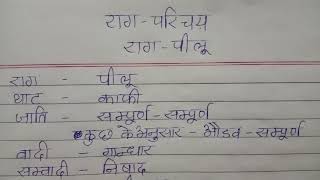 राग-परिचय
राग-पीलू
राग - पीलू
थाट - काफी
जाति - सम्पूर्ण-सम्पूर्ण
कुछ के अनुसार - औडव-सम्पूर्ण
वादी - गान्धार
सम्वादी - निषाद